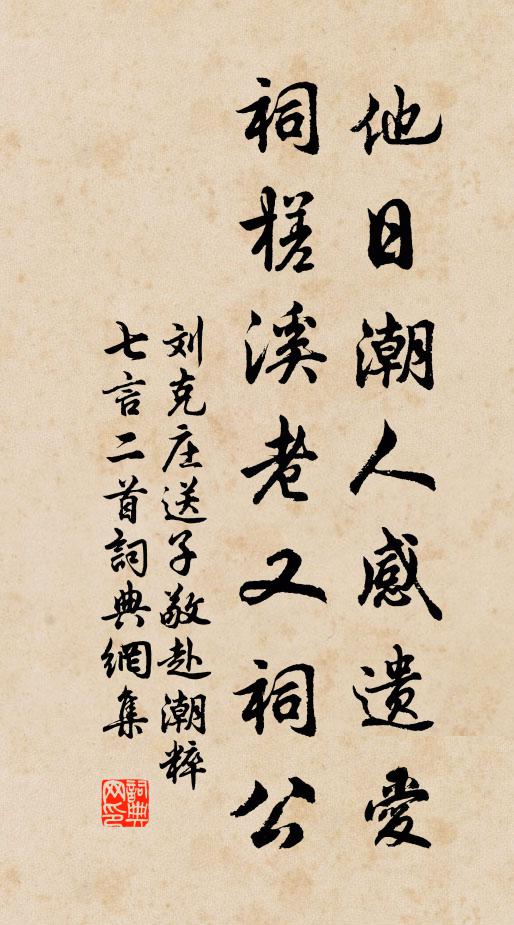 他日潮人感遗愛
祠槎溪老又祠公
刘克庄送子敬赴潮粹
七言二首詞典網集
詞典网印